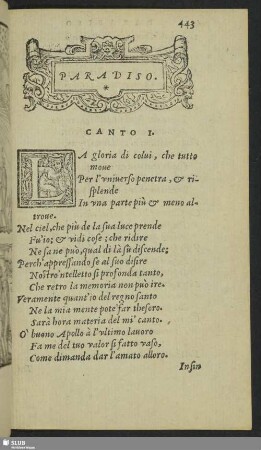 443
PARADISO.
*
CANTO I.
LA gloria di colui, che tutto
moue
Per l'vniuerso penetra, & ri-
splende
In vna parte più & meno al-
troue.
Nel ciel, che più de la sua luce prende
Fu'io; & vidi cose; che ridire
Ne sa ne può, qual di là sù discende;
Perch'appressando se al suo disire
Nostr'entelletto si profonda tanto,
Che retro la memoria non può ire.
Veramente quant'io del regno santo
Ne la mia mente pote far thesoro.
Sarà hora materia del mi' canto.
O' buono Apollo à l'vltimo lauoro
Fa me del tuo valor sì fatto vaso,
Come dimanda dar l'amato alloro.
Insin
SLUB